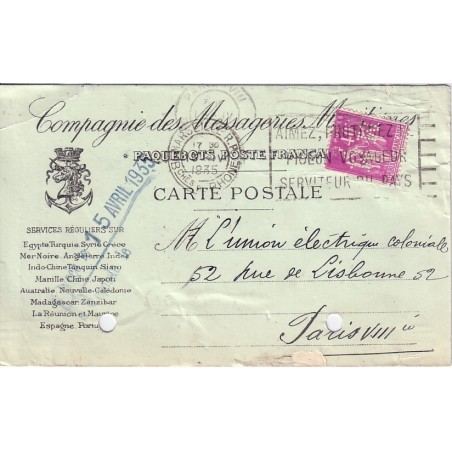 Compagnie des Messageries Maritimes
PAQUEBOTS POSTE FRANÇAIS
CARTE POSTALE
PARIS VIII
17 30
1935
AIMEZ, PROTEGEZ
PIGEON VOYAGEUR
SERVITEUR DU PAYS
15 AVRIL 1935
SERVICES RÉGULIERS SUR
Egypte Turquie Syrie Grèce
Mer Noire Angleterre Indes
Indo-Chine Tonquin Siam
Manille Chine Japon
Australie Nouvelle-Calédonie
Madagascar Zanzibar
La Réunion et Maurice
Espagne Portu
M. L'union électrique coloniale
52 rue de Lisbonne 52
Paris VIIIe